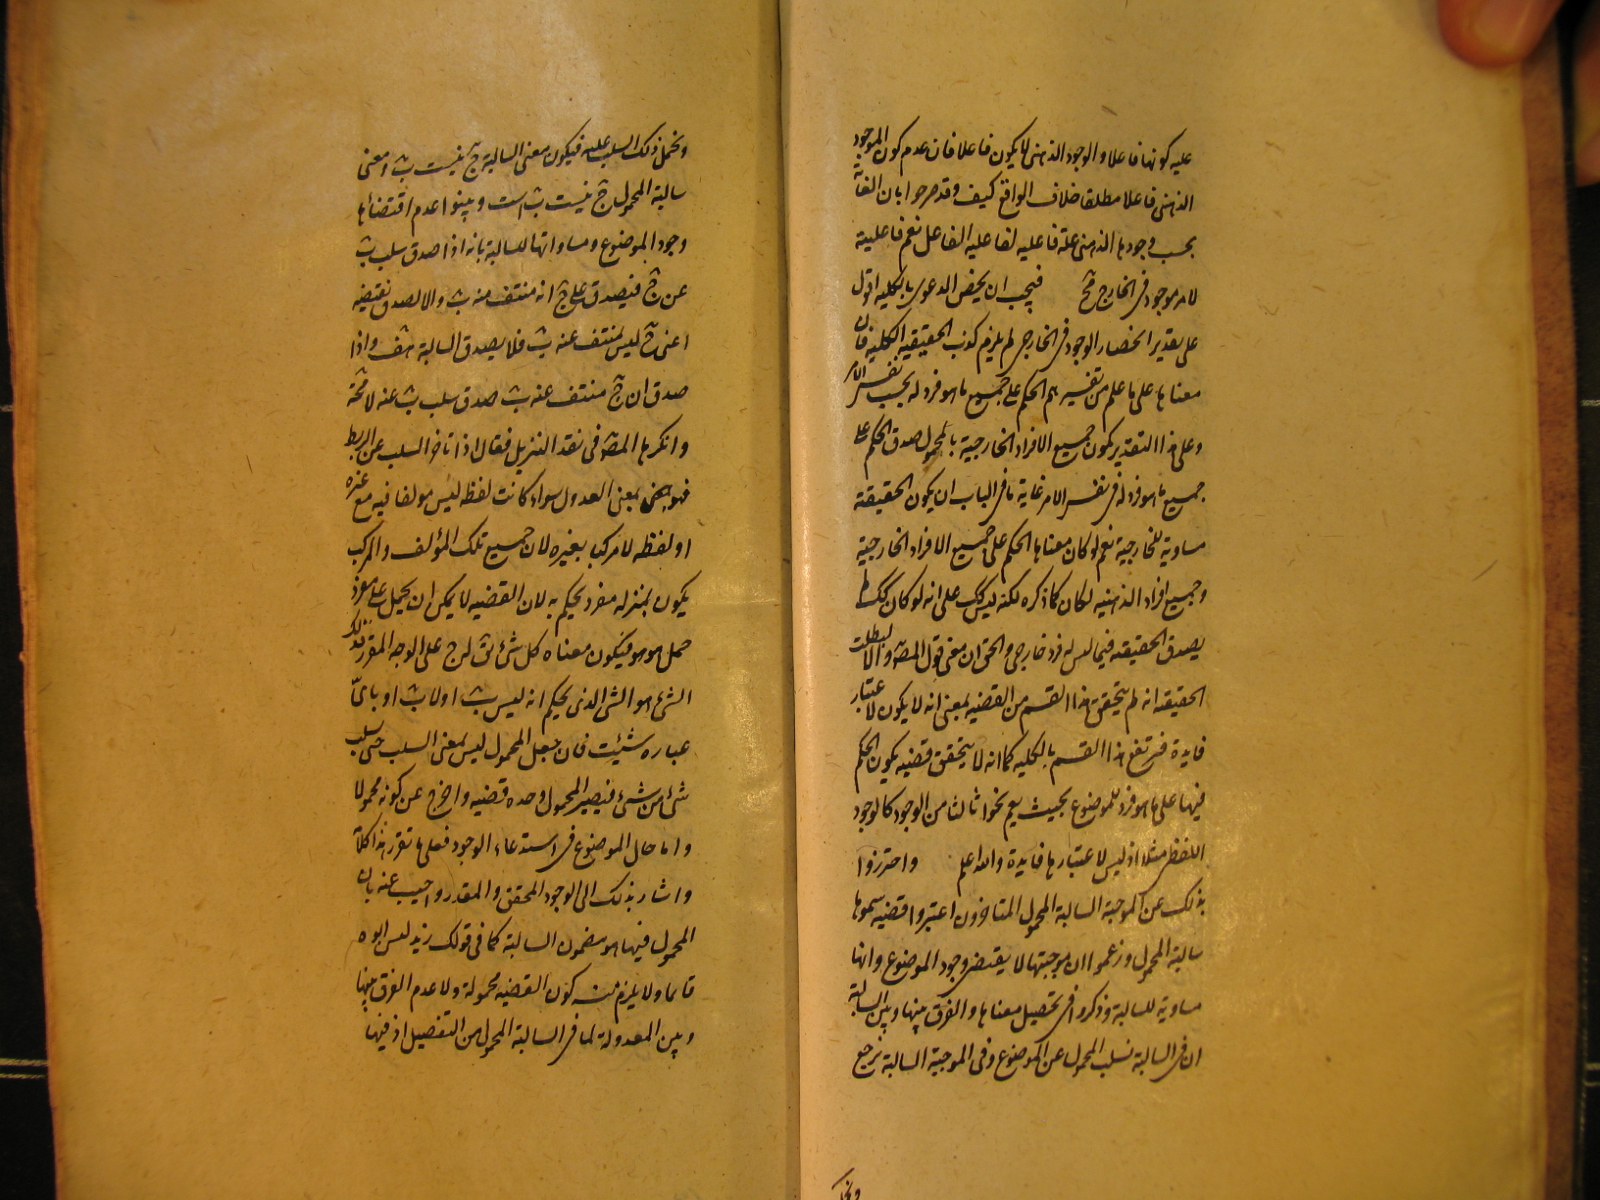 عليه كونها فاعلا والوجود الذهنى لا يكون فاعلا فان عدم كون الموجود
الذهنى فاعلا مطلقا خلاف الواقع كيف وقد صرحوا بان الغاية
بحسب وجودها الذهنى علة فاعليه لفاعليه الفاعل نعم فاعلية
لامر موجود فى الخارج مح فيجب ان يخص الدعوى بالكليه اقول
على تقدير انحصار الوجود فى الخارجى لم يلزم كذب الحقيقيه الكليه فان
معناها على ما علم من تفسيرهم الحكم على جميع ما هو فرد له بحسب نفس الامر
وعلى هذا التقدير يكون جميع الافراد الخارجية بالمحمول صدق الحكم على
جميع ما هو فرد له فى نفس الامر غاية ما فى الباب ان يكون الحقيقية
مساوية للخارجية نعم لو كان معناها الحكم على جميع الافراد الخارجية
وجميع افراد الذهنيه لكان كما ذكره لكنه ليس كك على انه لو كان كك لم
يصدق الحقيقيه فيما ليس له فرد خارجى والحق ان معنى قول المصه والا لبطلت
الحقيقيه انه لم يتحقق هذا القسم من القضيه بمعنى انه لا يكون لاعتبار
فايدة فيرتفع هذا القسم بالكليه كما انه لا يتحقق قضيه يكون الحكم
فيها على ما هو فرد للموضوع بحيث يعم نحوا ثالثا من الوجود كالوجود
اللفظى مثلا اذ ليس لاعتبارها فايدة والله اعلم واحترزوا
بذلك عن الموجبة السالبة المحمول المتاخرون اعتبروا قضيه سموها
سالبة المحمول وزعموا ان موجبتها لا يقتضى وجود الموضوع وانها
مساوية للسالبة وذكروا فى تحصيل معناها والفرق بينها وبين السالبة
ان فى السالبة نسلب المحمول عن الموضوع وفى الموجبة السالبة نرجع
ونحمل ذلك السلب عليه فيكون معنى السالبة ج نيست ب ومعنى
سالبة المحمول ج نيست ب است وبينوا عدم اقتضائها
وجود الموضوع ومساواتها للسالبة بانه اذا صدق سلب ب
عن ج فيصدق على ج انه منتف عنه ب والا لصدق نقيضه
اعنى ج ليس بمنتف عنه ب فلا يصدق السالبة هف واذا
صدق ان ج منتف عنه ب صدق سلب ب عنه لا محة
وانكرها المصه فى نقد التنزيل فقال اذا تاخر السلب عن الربط
فهو بمعنى العدول سواء كانت لفظه ليس مولفا فيه مع غيره
او لفظه لا مركبا بغيره لان جميع تلك المؤلف والمركب
يكون بمنزله مفرد يحكم به لان القضيه لا يمكن ان يحمل على مفرد
حمل هو هو فيكون معناه كل شئ يق له ج على الوجه المقرر فذلك
الشئ هو الشئ الذى يحكم انه ليس ب او لا ب او باى
عباره شئت فان جعل المحمول ليس بمعنى السلب حتى سلب
شئ من شئ فيصير المحمول وحده قضيه واخرج عن كونه محمولا
واما حال الموضوع فى استدعاء الوجود فعلى ما تقرر هذا كلامه
واشار بذلك الى الوجود المحقق والمقدر واجيب عنه بان
المحمول فيها هو مضمون السالبة كما فى قولك زيد ليس ابوه
قائما ولا يلزم منه كون القضيه محمولة ولا عدم الفرق بينها
وبين المعدولة لما فى السالبة المحمول من التفصيل اذ فيها